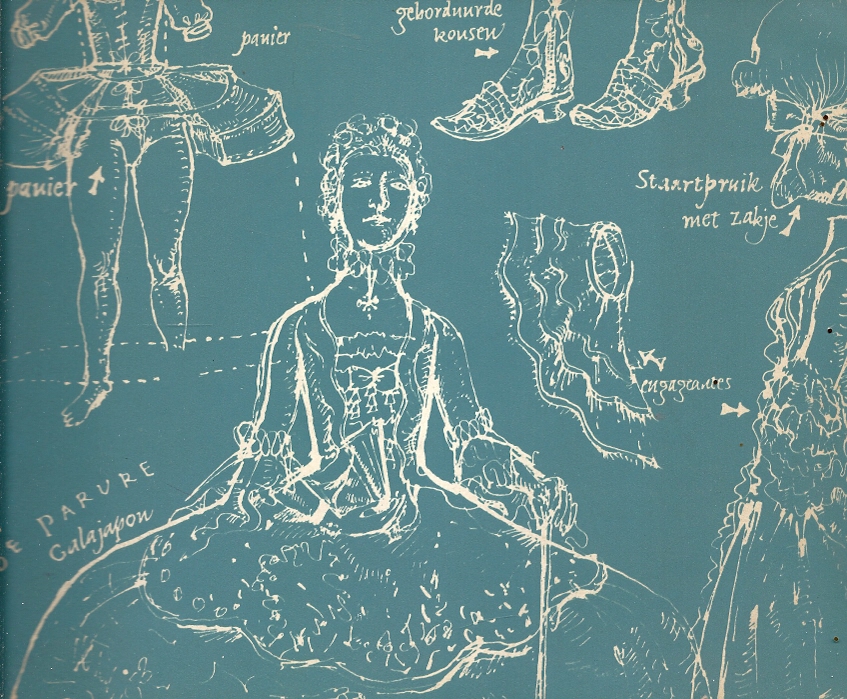 panier
geborduurde
kousen
panier
Staartpruik
met zakje
engageantes
DE PARURE
Galajapon